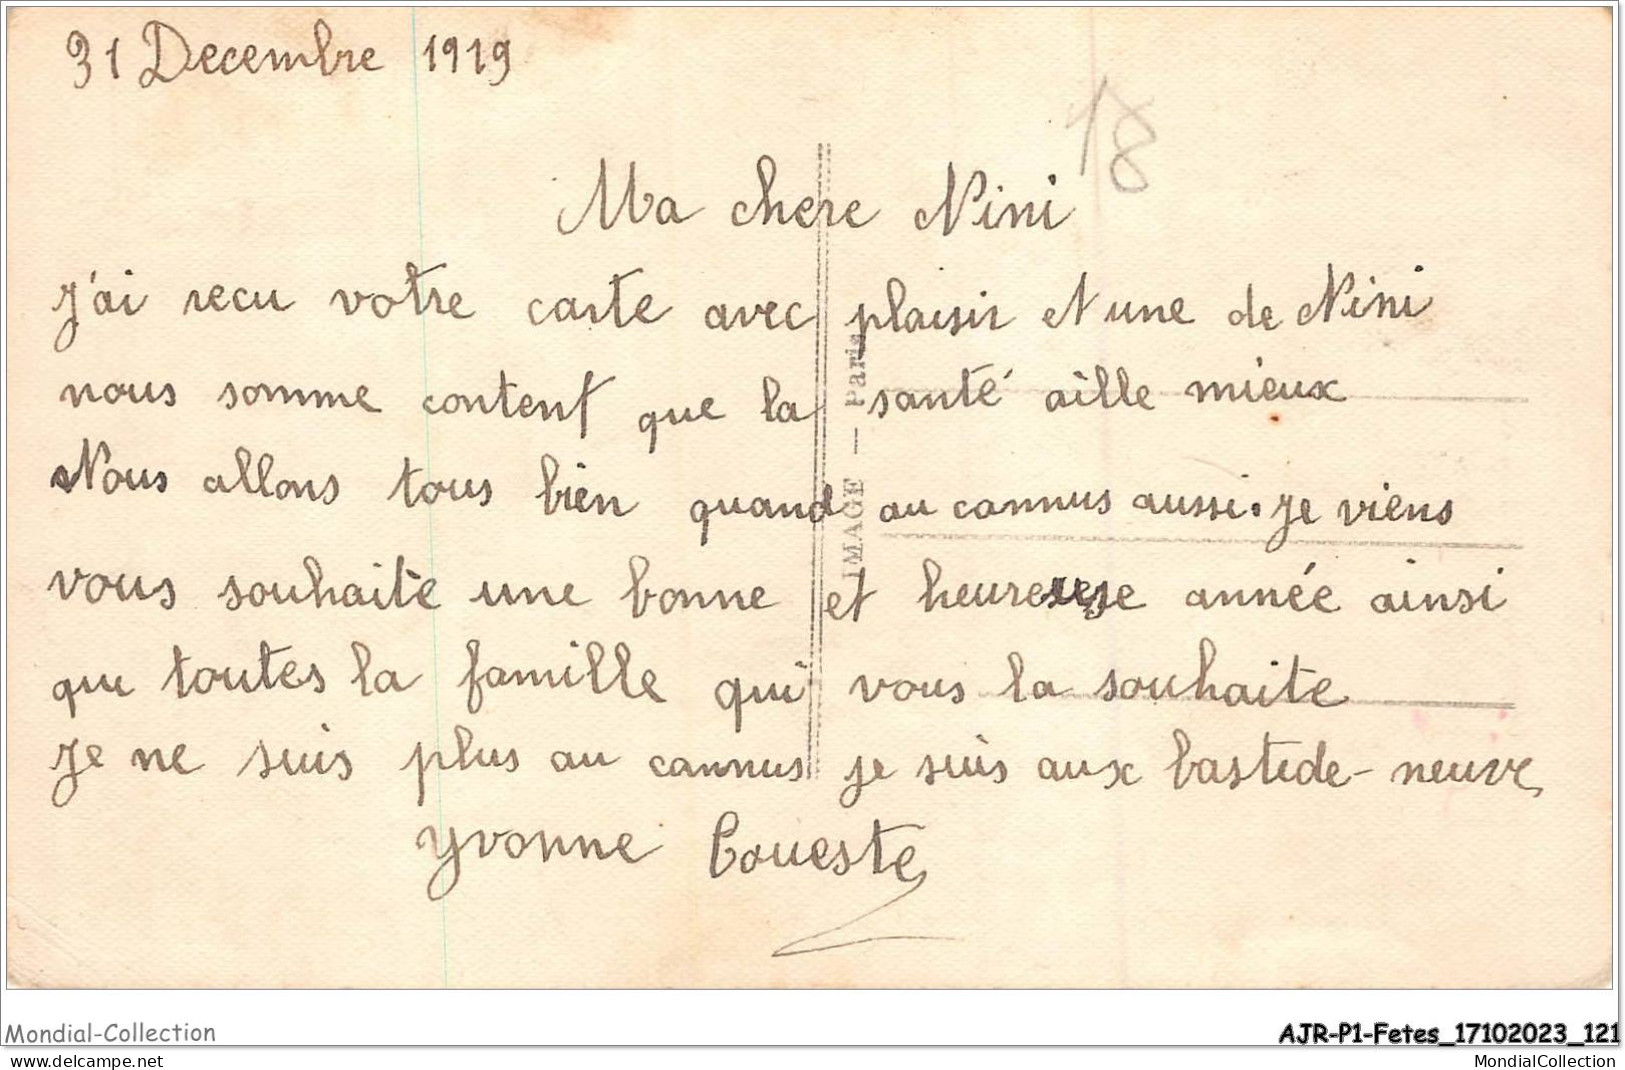 31 Decembre 1919
18
Ma chere Nini
J'ai recu votre carte avec plaisir et une de Nini
nous somme content que la santé aille mieux
Nous allons tous bien quand au cannus aussi. je viens
vous souhaite une bonne et heureuse année ainsi
que toutes la famille qui vous la souhaite
Je ne suis plus au cannus je suis aux bastide-neuve
Yvonne Coueste
IMAGE — Paris
Mondial-Collection
www.delcampe.net
AJR-P1-Fetes_17102023_121
MondialCollection